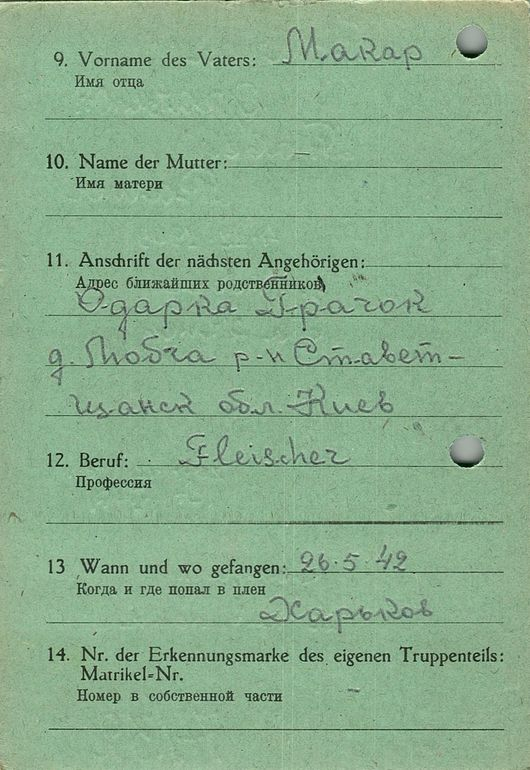 9. Vorname des Vaters: Макар
Имя отца
10. Name der Mutter:
Имя матери
11. Anschrift der nächsten Angehörigen:
Адрес ближайших родственников
Одарка Грачок
д. Любча р-н Ставет-
щанск обл. Киев
12. Beruf: Fleischer
Профессия
13 Wann und wo gefangen: 26.5.42
Когда и где попал в плен
Харьков
14. Nr. der Erkennungsmarke des eigenen Truppenteils:
Matrikel-Nr.
Номер в собственной части